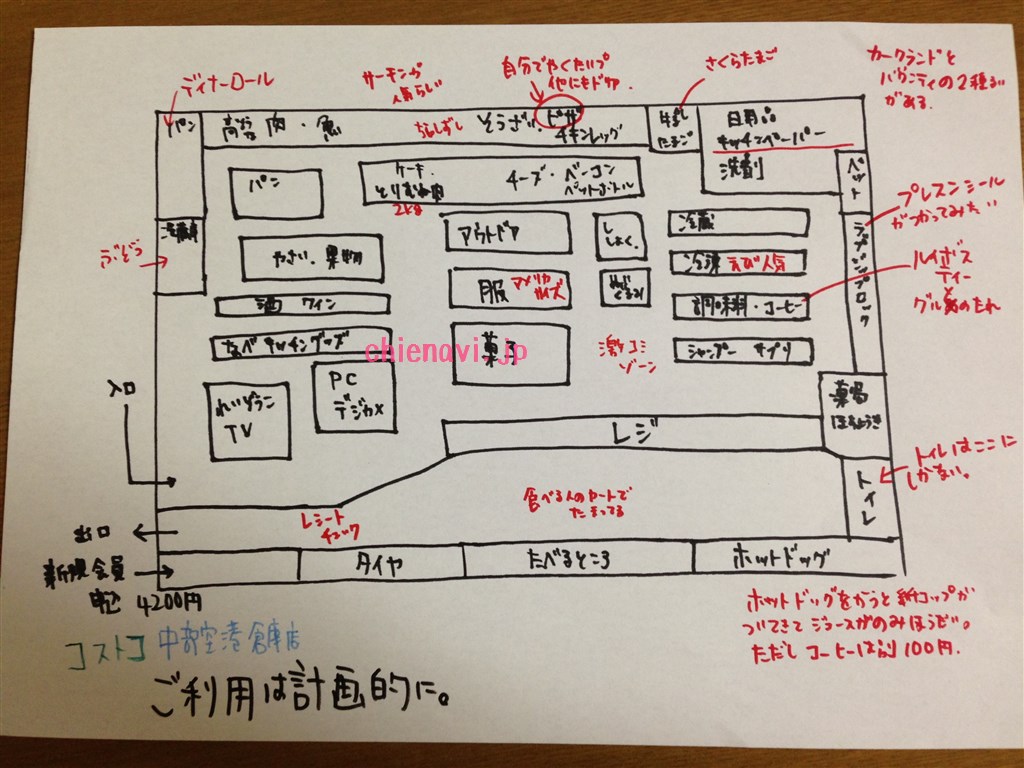 ディナーロール
サーモンが
人気らしい
自分でやくたいプ
他にもドリア
さくらたまご
カークランドと
バウンティの2種類
がある
パン
高級 肉・魚
ちらしずし
そうざい・ピザ
チキンレッグ
牛乳
たまご
日用品
キッチンペーパー
洗剤
ペット
パン
ケーキ
とりむね肉
2kg
チーズ・ベーコン
ペットボトル
プレスンシール
がつかってみたい
冷蔵庫
ぶどう
やさい・果物
アウトドア
ししょく
冷蔵
ラップ ジップロック
服 アメリカサイズ
冷凍 えび人気
ルイボス
ティー
と
グル
のたれ
酒 ワイン
調味料・コーヒー
なべ キッチングッズ
chienavi.jp
菓子
激コミ
ゾーン
シャンプー サプリ
入口
れいぞうこ
TV
PC
デジカメ
薬局
レジ
トイレはここに
しかない。
トイレ
食べる人のカートで
たまってる
レシート
チェック
出口
新規会員
申込 4200円
タイヤ
たべるところ
ホットドッグ
ホットドッグをかうと紙コップが
ついてきてジュースがのみほうだい。
ただしコーヒーは別100円.
コストコ 中部空港倉庫店
ご利用は計画的に。